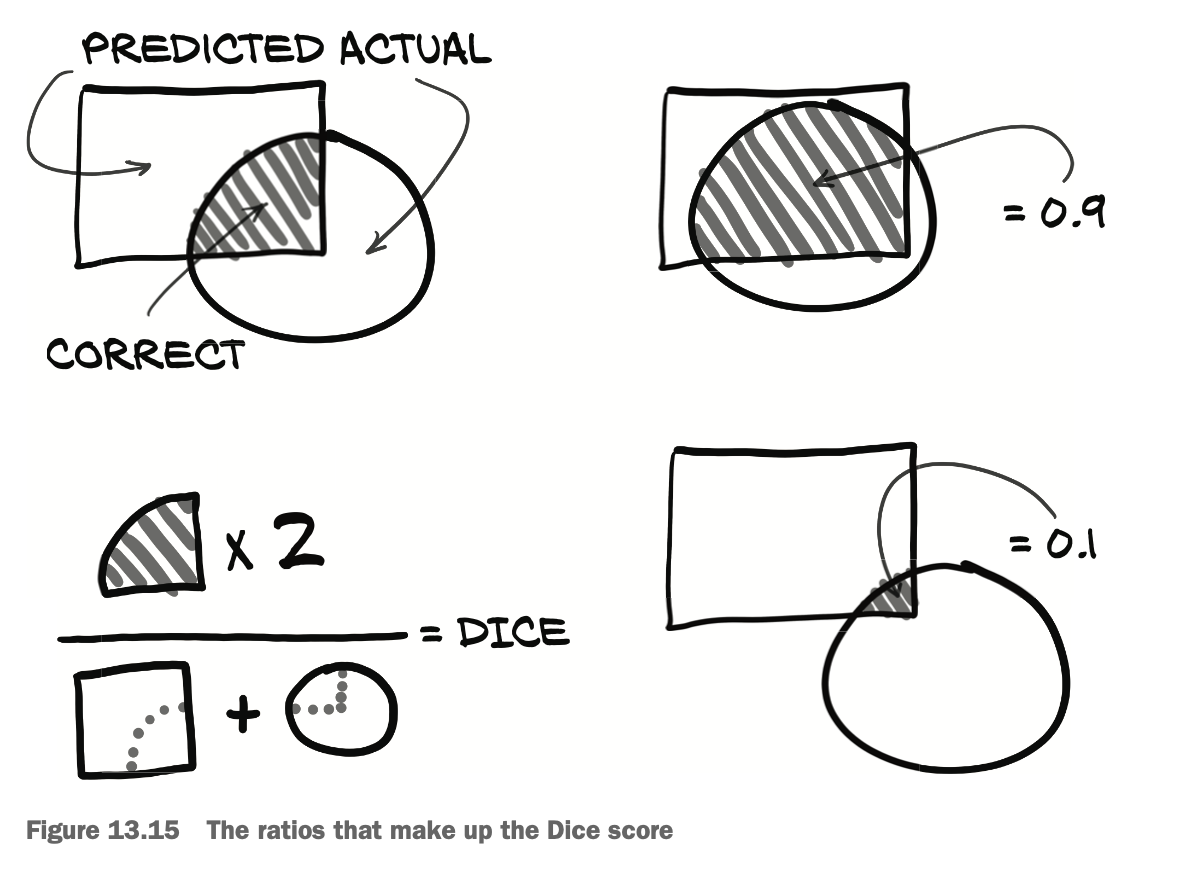 PREDICTED ACTUAL
CORRECT
= 0.9
x 2
= DICE
+
= 0.1
Figure 13.15 The ratios that make up the Dice score